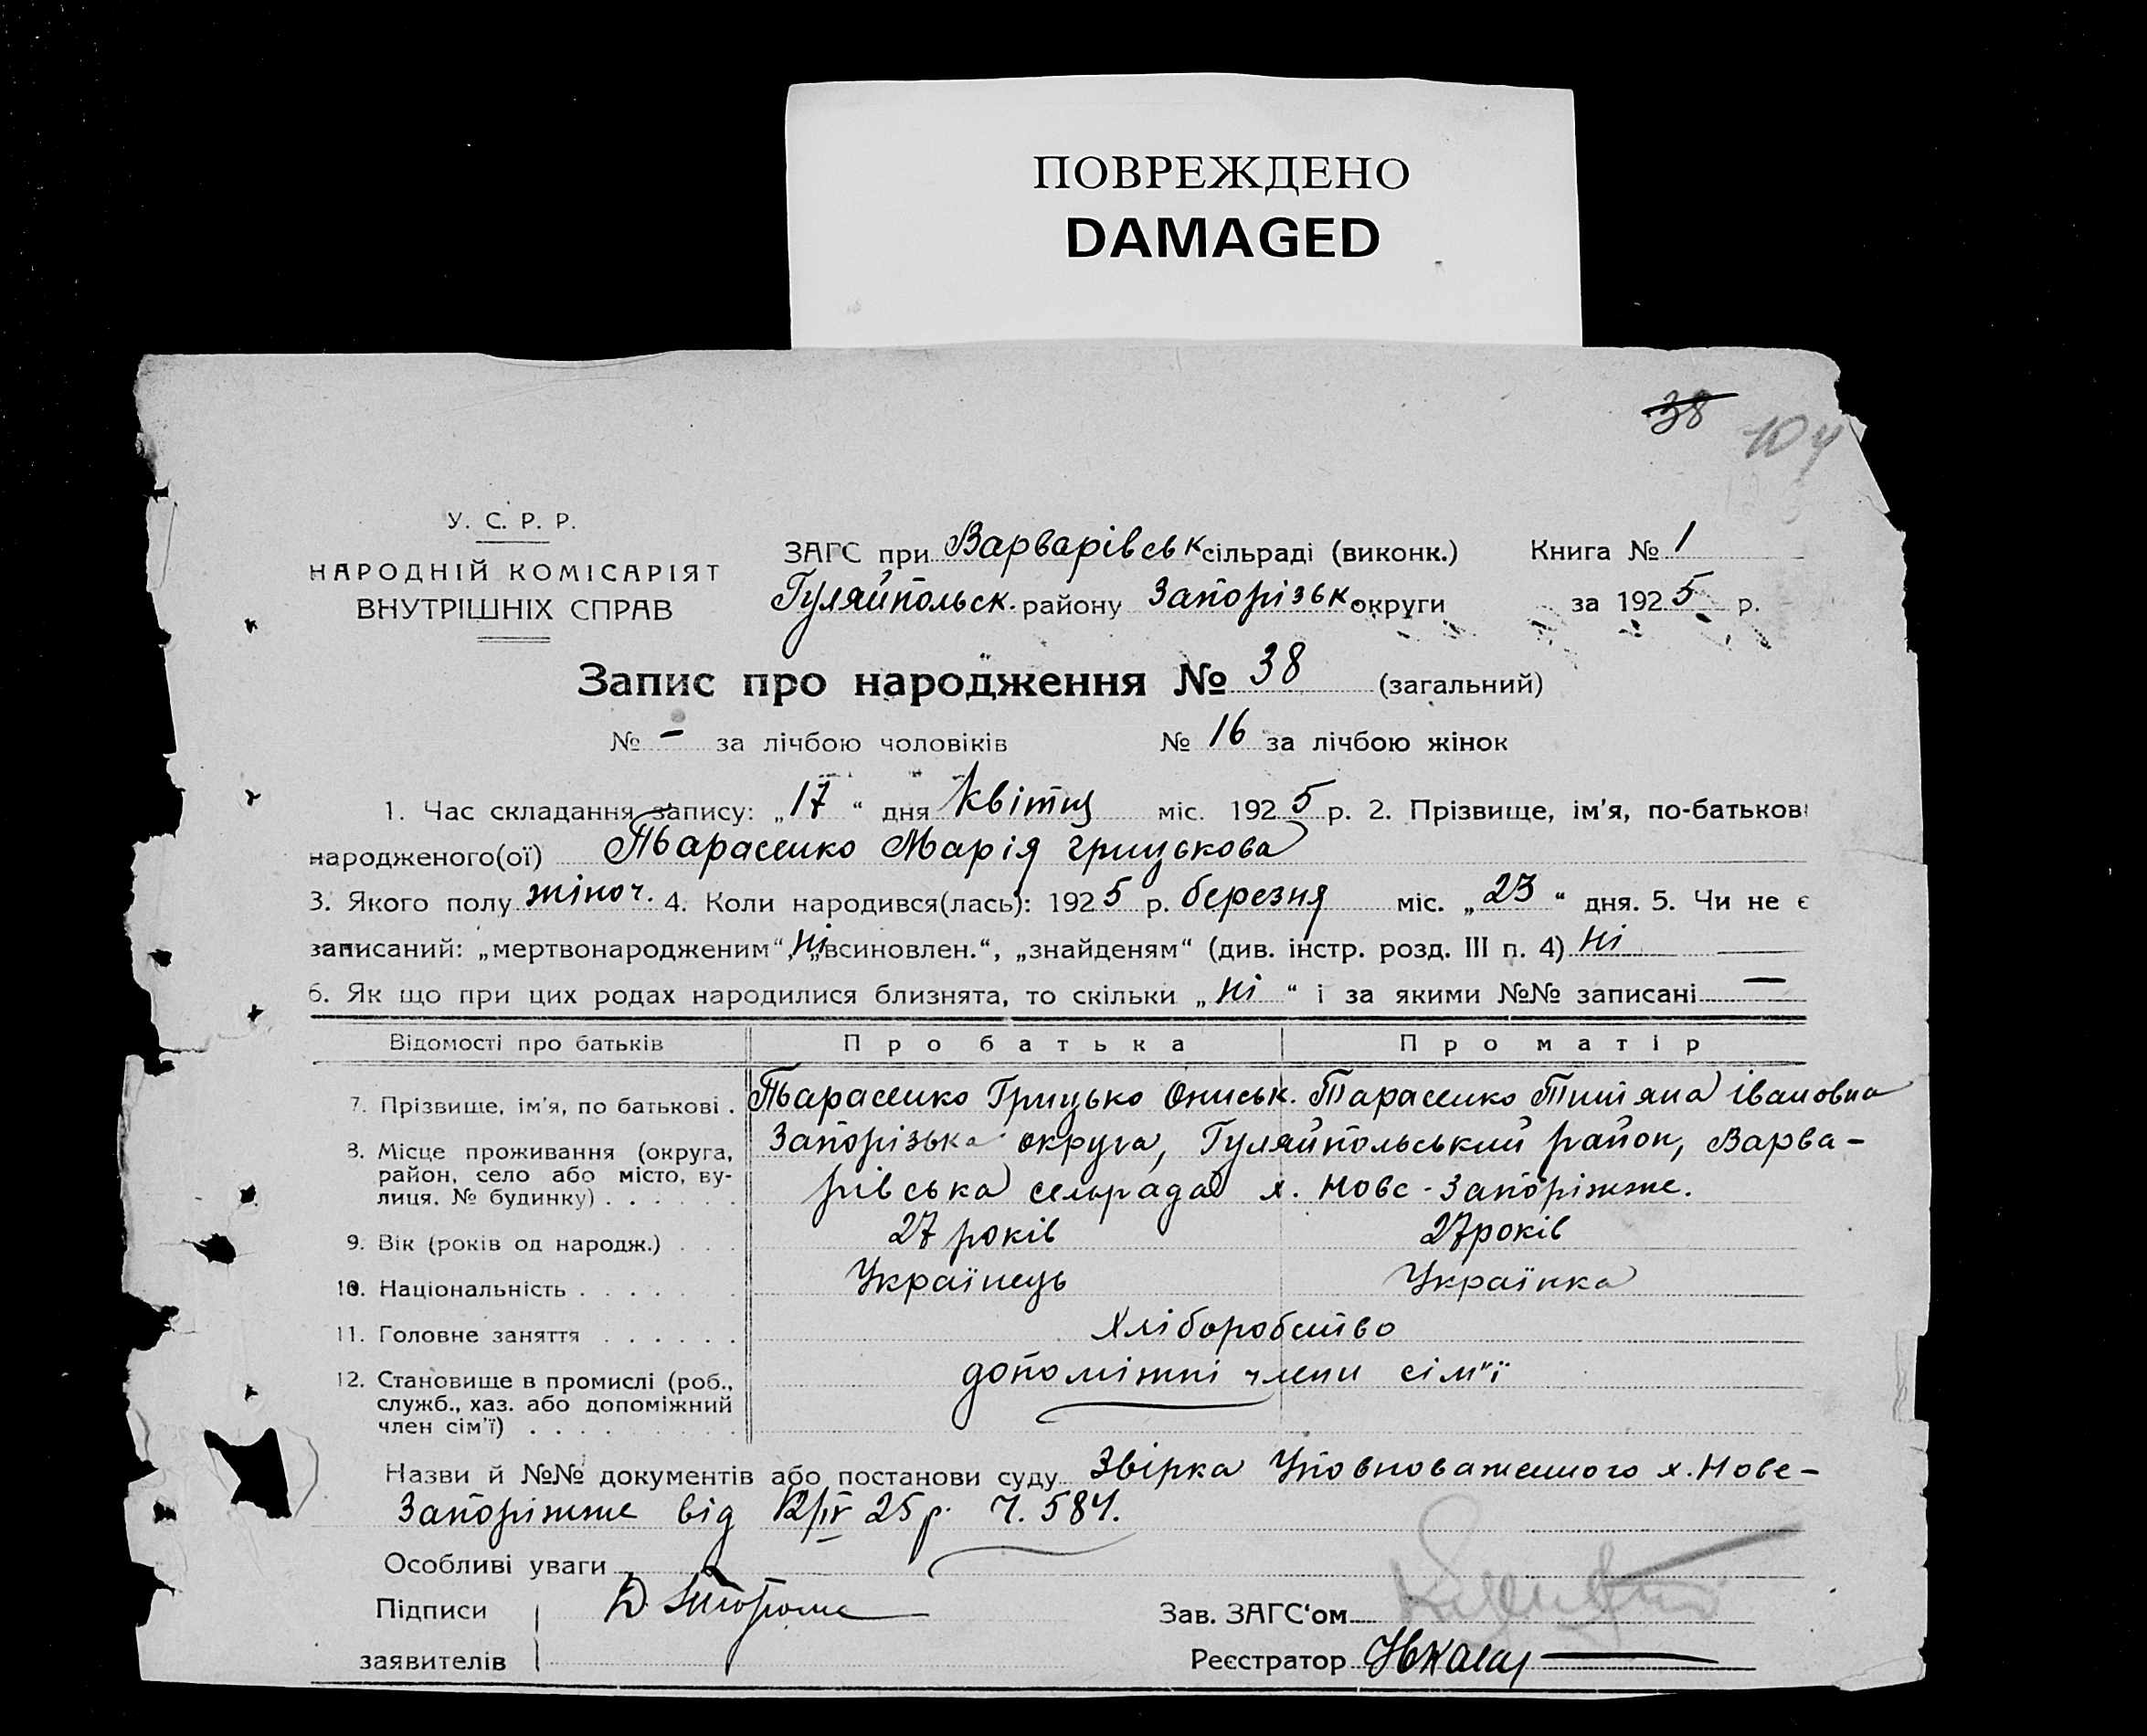 ПОВРЕЖДЕНО
DAMAGED
38
104
У. С. Р. Р.
НАРОДНІЙ КОМІСАРІЯТ
ВНУТРІШНІХ СПРАВ
ЗАГС при Варварівськ сільраді (виконк.) Книга № 1
Гуляйпольськ. району Запорізьк округи за 1925 р.
Запис про народження № 38 (загальний)
№ – за лічбою чоловіків № 16 за лічбою жінок
1. Час складання запису: „17“ дня квітня міс. 1925 р. 2. Прізвище, ім'я, по-батькові
народженого(ої) Тарасенко Марія Грицькова
3. Якого полу жіноч. 4. Коли народився(лась): 1925 р. березня міс. „23“ дня. 5. Чи не є
записаний: „мертвонародженим“, ні „всиновлен.“, „знайденям“ (див. інстр. розд. III п. 4) ні
6. Як що при цих родах народилися близнята, то скільки „ні“ і за якими №№ записані –
Відомості про батьків Про батька Про матір
7. Прізвище, ім'я, по батькові . Тарасенко Грицько Ониськ. Тарасенко Титяна Івановна
8. Місце проживання (округа, район, село або місто, вулиця. № будинку) Запорізька округа, Гуляйпольський район, Варва-
рівська сельрада х. Ново-Запоріжже.
9. Вік (років од народж.) 27 років 27 років
10. Національність Українець Українка
11. Головне заняття Хліборобство
12. Становище в промислі (роб., служб., хаз. або допоміжний член сім'ї) допоміжні члени сім"ї
Назви й №№ документів або постанови суду Звірка Уповноваженного х. Нове-
Запоріжже від 12/IV 25 р. Ч. 584.
Особливі уваги
Підписи
заявителів
Зав. ЗАГС'ом
Реєстратор